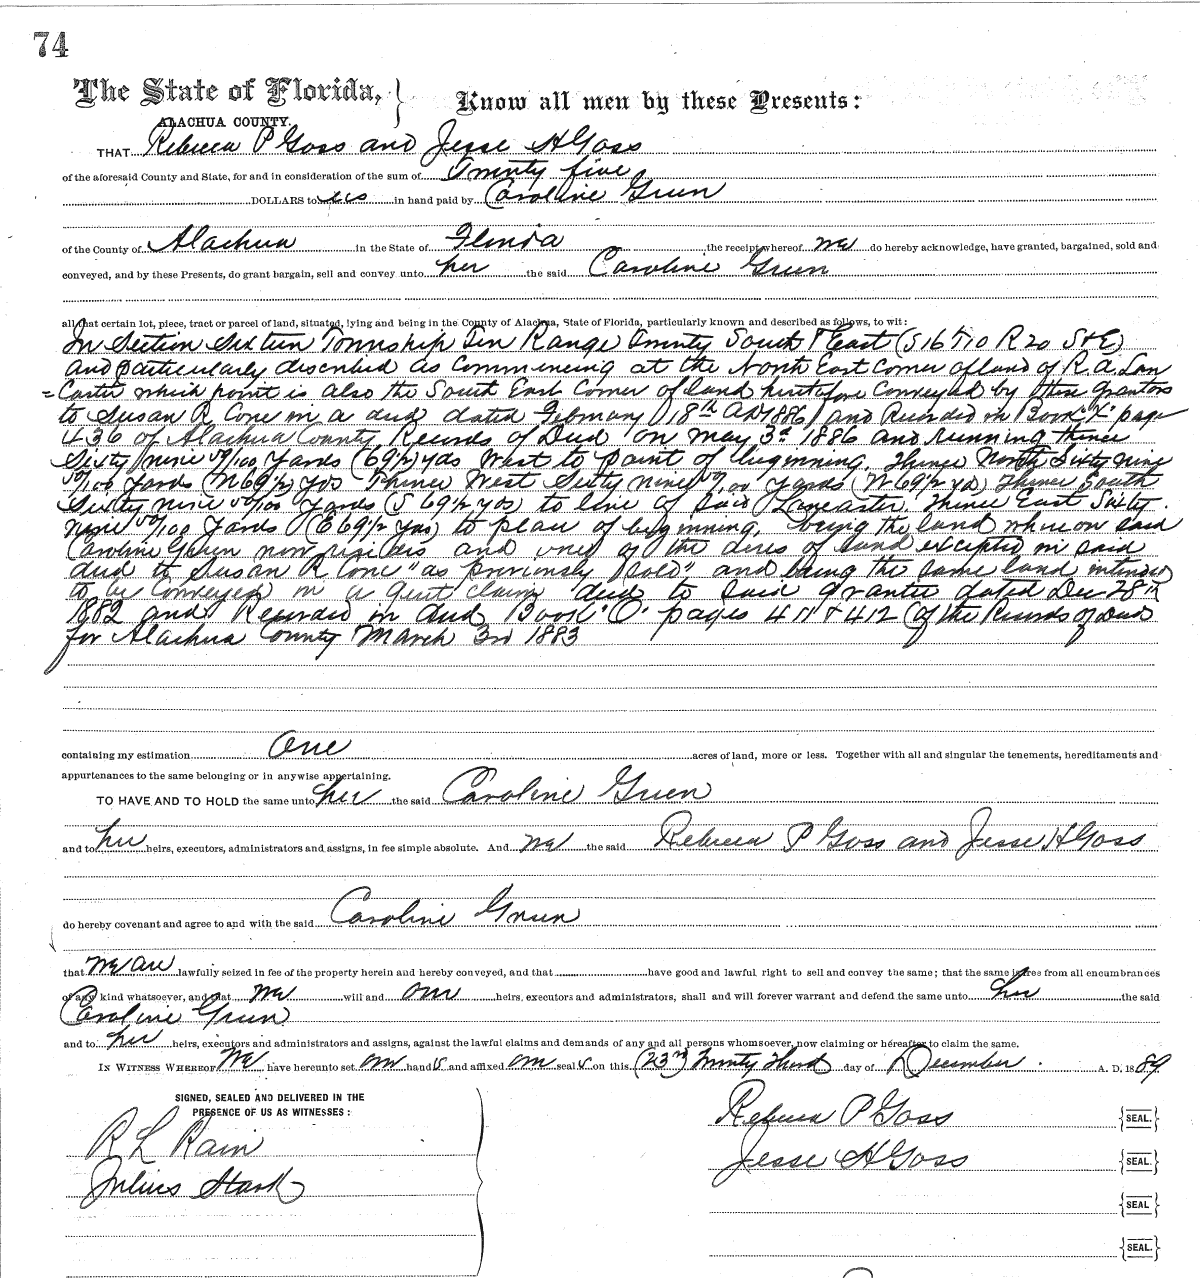 74
The State of Florida,
Know all men by these Presents:
ALACHUA COUNTY.
THAT Rebecca P Goss and Jesse H Goss
of the aforesaid County and State, for and in consideration of the sum of Twenty five
DOLLARS to us in hand paid by Caroline Green
of the County of Alachua in the State of Florida the receipt whereof we do hereby acknowledge, have granted, bargained, sold and
conveyed, and by these Presents, do grant bargain, sell and convey unto her the said Caroline Green
all that certain lot, piece, tract or parcel of land, situated, lying and being in the County of Alachua, State of Florida, particularly known and described as follows, to wit:
In Section Sixteen Township Ten Range Twenty South & East (S16 T10 R20 S&E)
and particularly described as Commencing at the North East Corner of land of R. A. Lan
=Caster which point is also the South East Corner of land heretofore Conveyed by these grantors
to Susan R Cone in a deed dated February 18th AD 1886 and Recorded in Book page
436 of Alachua County Records of Deed on May 3d 1886 and running thence
Sixty nine 50/100 Yards (69½) yds West to point of beginning. Thence North Sixty nine
50/100 Yards (N 69½) yds Thence West Sixty nine 50/100 Yards (W 69½ yds) Thence South
Sixty nine 50/100 Yards (S 69½ yds) to line of said Lancaster. Thence East Sixty
nine 50/100 Yards (E 69½ yds) to place of beginning, being the land whereon said
Caroline Green now resides and one of the acres of land excepted in said
deed to Susan R Cone "as previously sold" and being the same land intended
to be Conveyed in a quit claim deed to said grantee dated Dec 28th
1882 and Recorded in deed Book "O" pages 411 & 412 of the Records of Deed
for Alachua County March 3rd 1883
containing my estimation One acres of land, more or less. Together with all and singular the tenements, hereditaments and
appurtenances to the same belonging or in anywise appertaining.
TO HAVE AND TO HOLD the same unto her the said Caroline Green
and to her heirs, executors, administrators and assigns, in fee simple absolute. And we the said Rebecca P Goss and Jesse H Goss
do hereby covenant and agree to and with the said Caroline Green
that we are lawfully seized in fee of the property herein and hereby conveyed, and that have good and lawful right to sell and convey the same; that the same is free from all encumbrances
of any kind whatsoever, and that we will and our heirs, executors and administrators, shall and will forever warrant and defend the same unto her the said
Caroline Green
and to her heirs, executors and administrators and assigns, against the lawful claims and demands of any and all persons whomsoever, now claiming or hereafter to claim the same.
IN WITNESS WHEREOF We have hereunto set our hand s and affixed our seal s on this (23rd) Twenty Third day of December A. D. 1889
SIGNED, SEALED AND DELIVERED IN THE
PRESENCE OF US AS WITNESSES:
Rebecca P Goss SEAL.
R L Rain
Jesse H Goss SEAL.
Julius Stark
SEAL
SEAL.